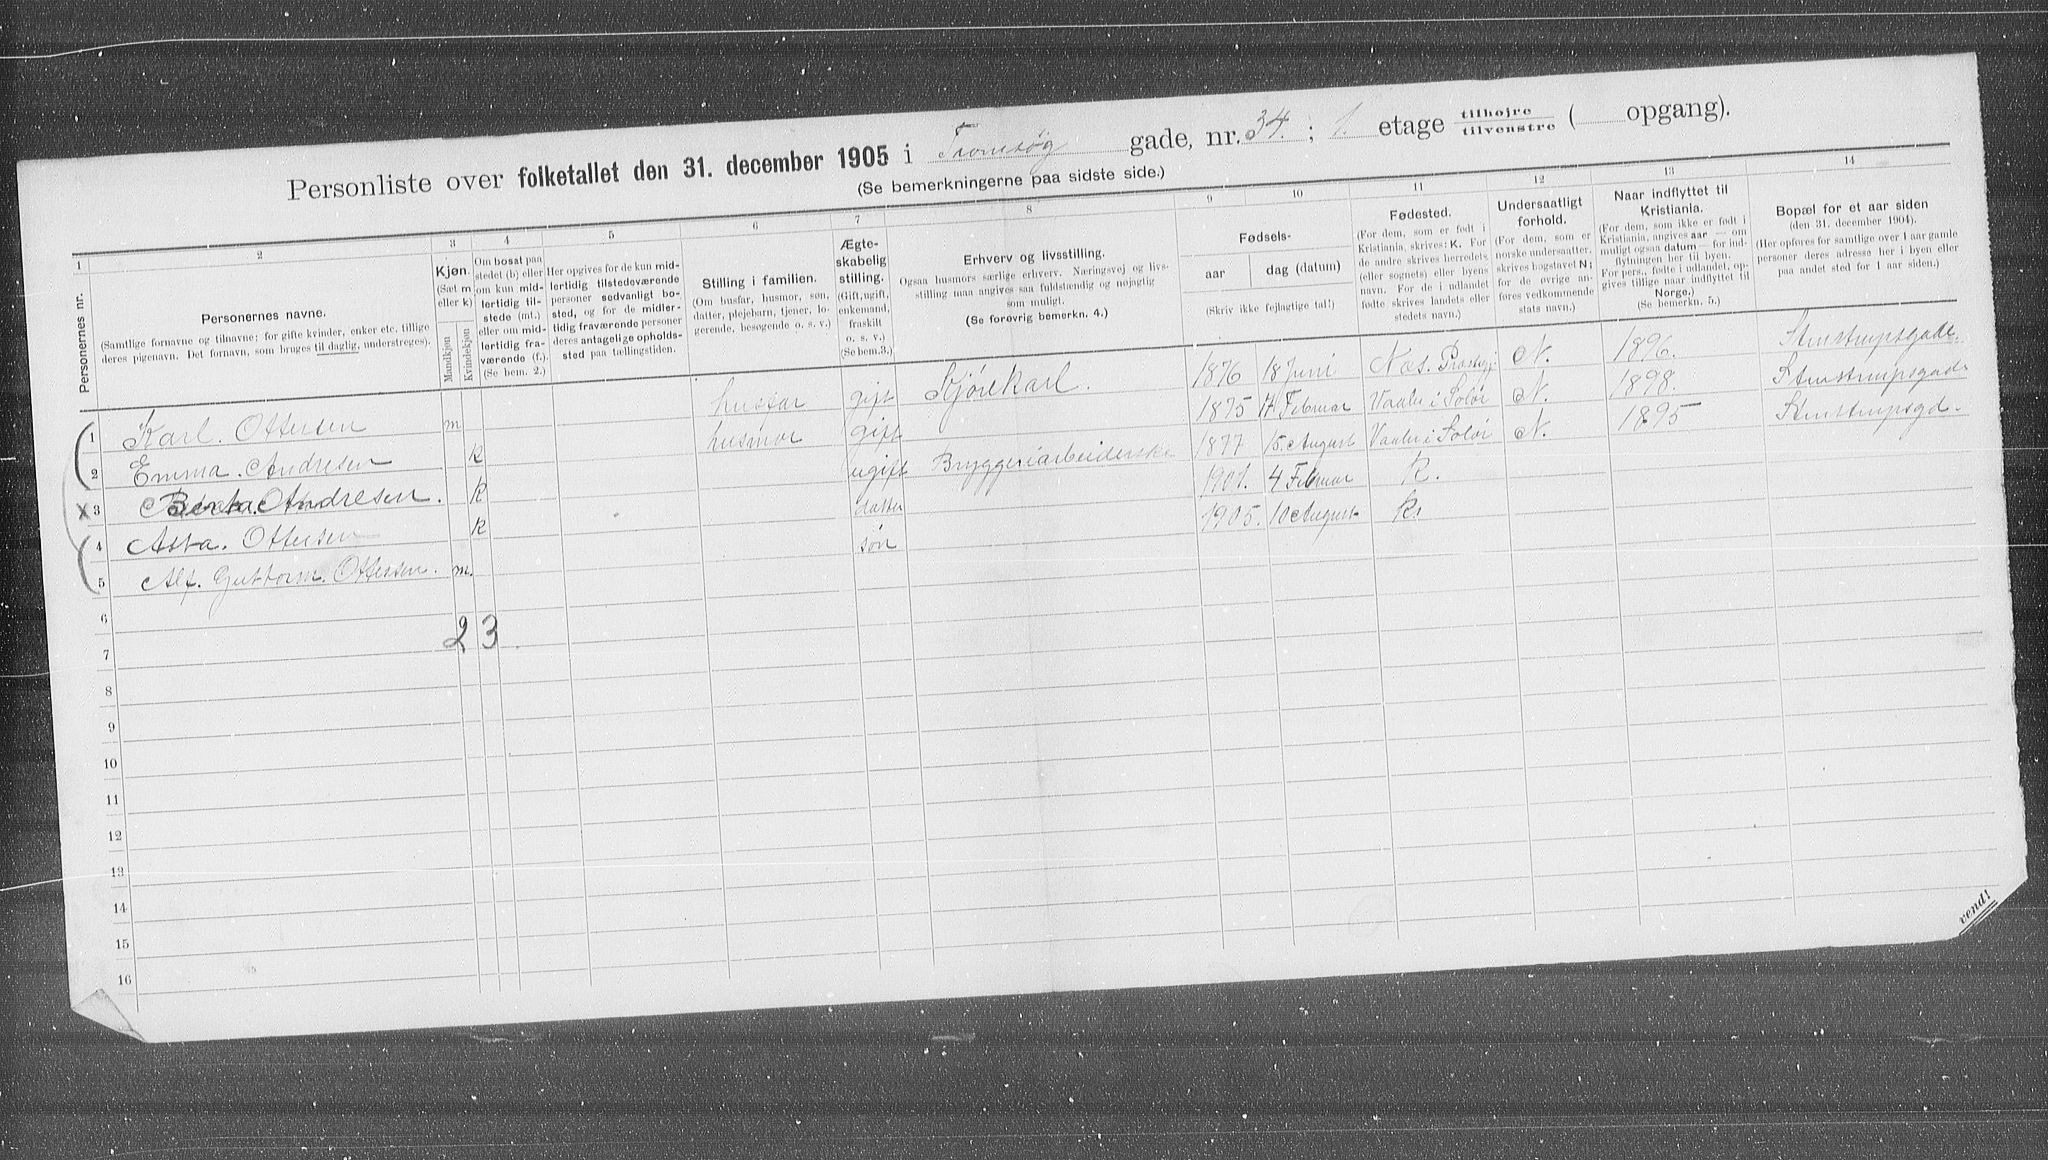 Personliste over folketallet den 31. december 1905 i Tromsøg gade, nr. 34. ; 1. etage tilhøjre/tilvenstre ( opgang).
(Se bemerkningerne paa sidste side.)
1 2 3 4 5 6 7 8 9 10 11 12 13 14
Personernes nr.
Personernes navne.
(Samtlige fornavne og tilnavne; for gifte kvinder, enker etc. tillige deres pigenavn. Det fornavn, som bruges til daglig, understreges).
Kjøn.
(Sæt m eller k)
Mandkjøn
Kvindekjøn
Om bosat paa stedet (b) eller om kun midlertidig tilstede (mt.) eller om midlertidig fraværende (f.)
(Se bem. 2.)
Her opgives for de kun midlertidig tilstedeværende personer sedvanligt bosted, og for de midlertidig fraværende personer deres antagelige opholdssted paa tællingstiden.
Stilling i familien.
(Om husfar, husmor, søn, datter, plejebarn, tjener, logerende, besøgende o. s. v.)
Ægteskabelig stilling.
(Gift, ugift, enkemand, fraskilt o. s. v.)
(Se bem. 3.)
Erhverv og livsstilling.
Ogsaa husmors særlige erhverv. Næringsvej og livsstilling maa angives saa fuldstændig og nøjagtig som muligt.
(Se forøvrig bemerkn. 4.)
Fødsels-
aar
dag (datum)
(Skriv ikke fejlagtige tal!)
Fødested.
(For dem, som er født i Kristiania, skrives: K. For de andre skrives herredets (eller sognets) eller byens navn. For de i udlandet fødte skrives landets eller stedets navn.)
Undersaatligt forhold.
(For dem, som er norske undersaatter, skrives bogstavet N; for de øvrige anføres vedkommende stats navn.)
Naar indflyttet til Kristiania.
(For dem, som ikke er født i Kristiania, angives aar — om muligt ogsaa datum — for indflytningen her til byen. For pers., fødte i udlandet, opgives tillige naar indflyttet til Norge.)
(Se bemerkn. 5.)
Bopæl for et aar siden
(den 31. december 1904).
(Her opføres for samtlige over 1 aar gamle personer deres adresse her i byen eller paa andet sted for 1 aar siden.)
1 Karl. Ottersen m husfar gift Kjørekarl. 1876 18 Juni Næs. N. 1896. Stenstrupsgade.
2 Emma. Andresen k husmor gift 1875 17 Februar Vaaler i Solør N. 1898. Stenstrupsgade
x 3 Berta. Andresen. k ugift Bryggeriarbeiderske 1877 15 August Vaaler i Solør N. 1895 Stenstrupsgd.
4 Asta. Ottersen k datter 1901. 4 Februar K.
5 Alf. Guttorm. Ottersen. m. søn 1905. 10 August K.
6
7 2 3
8
9
10
11
12
13
14
15
16
vend!